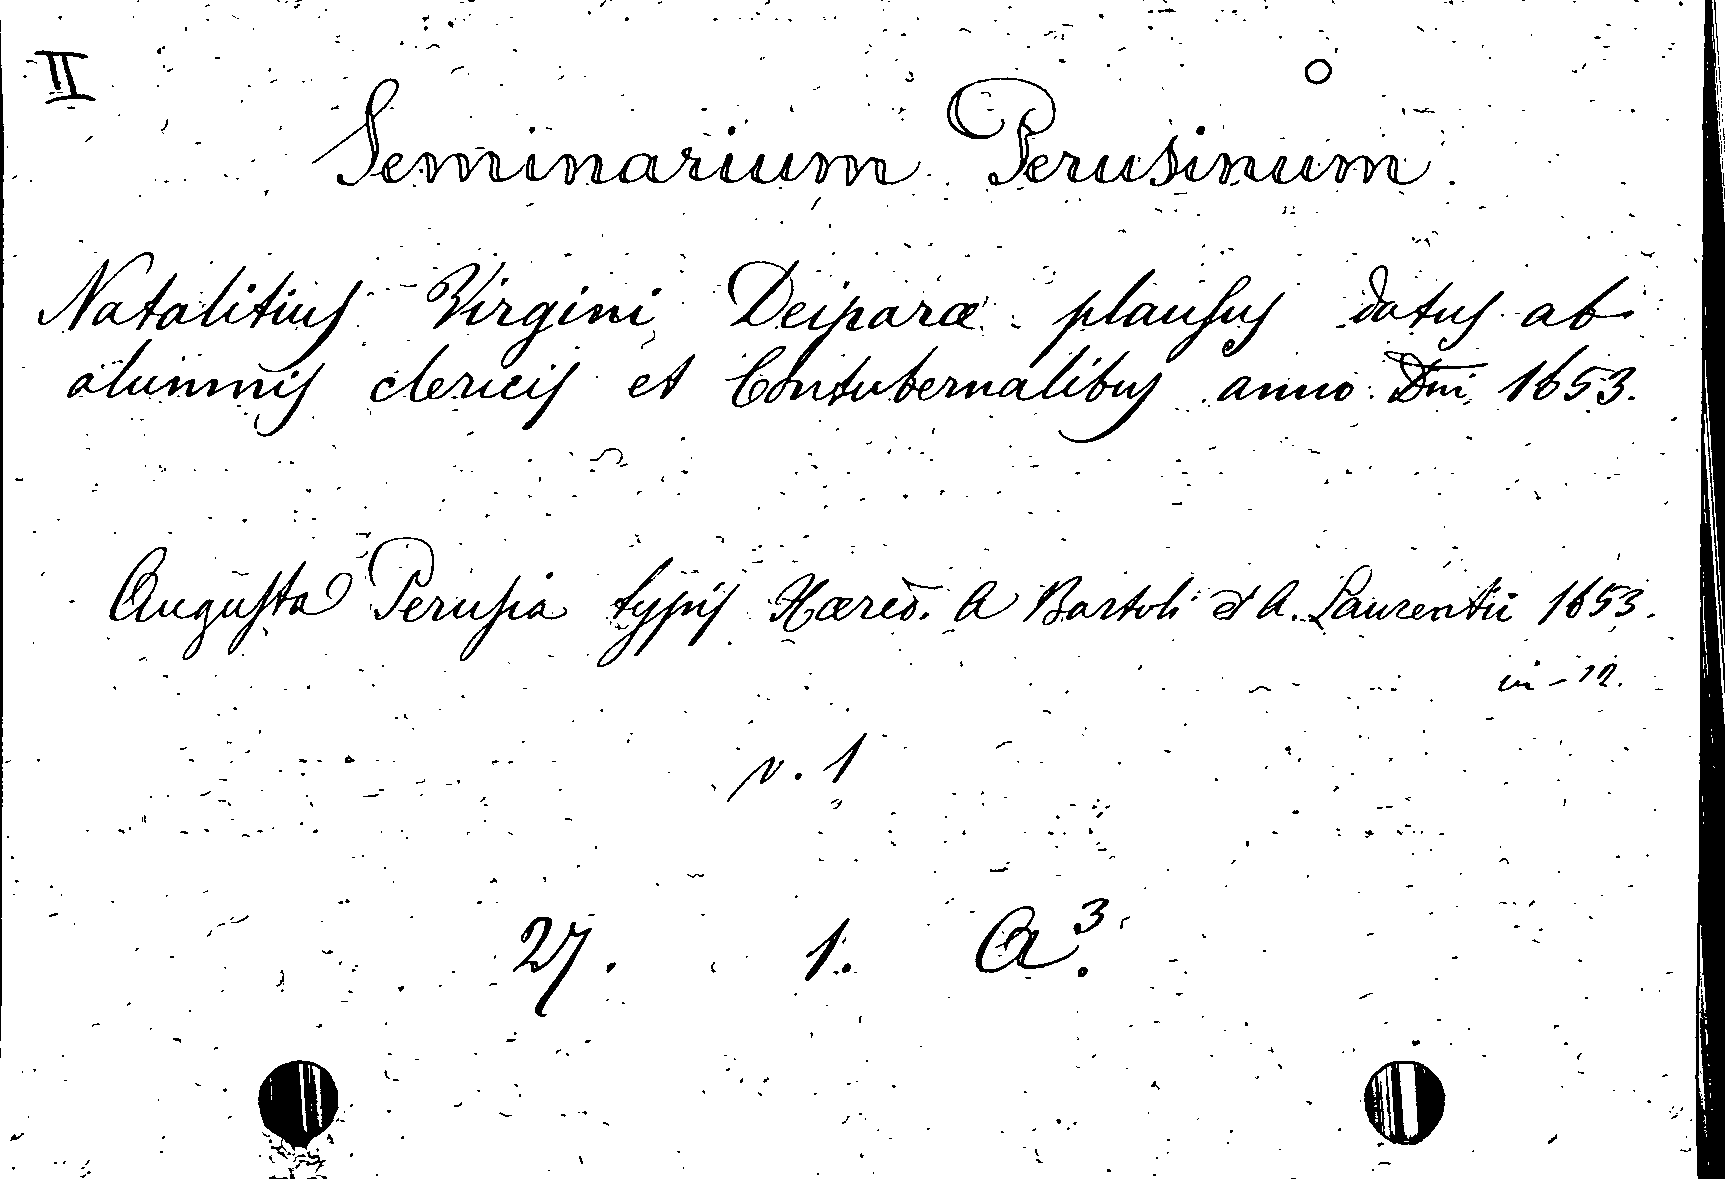 II
Seminarium Perusinum.
Natalitius Virgini Deiparæ plausus datus ab
alumnis clericis et Contubernalibus anno Dni 1653.
Augusta Perusia typis Hæred. A Bartoli et A. Laurentii 1653.
in-12.
v. 1
27. 1. A³.